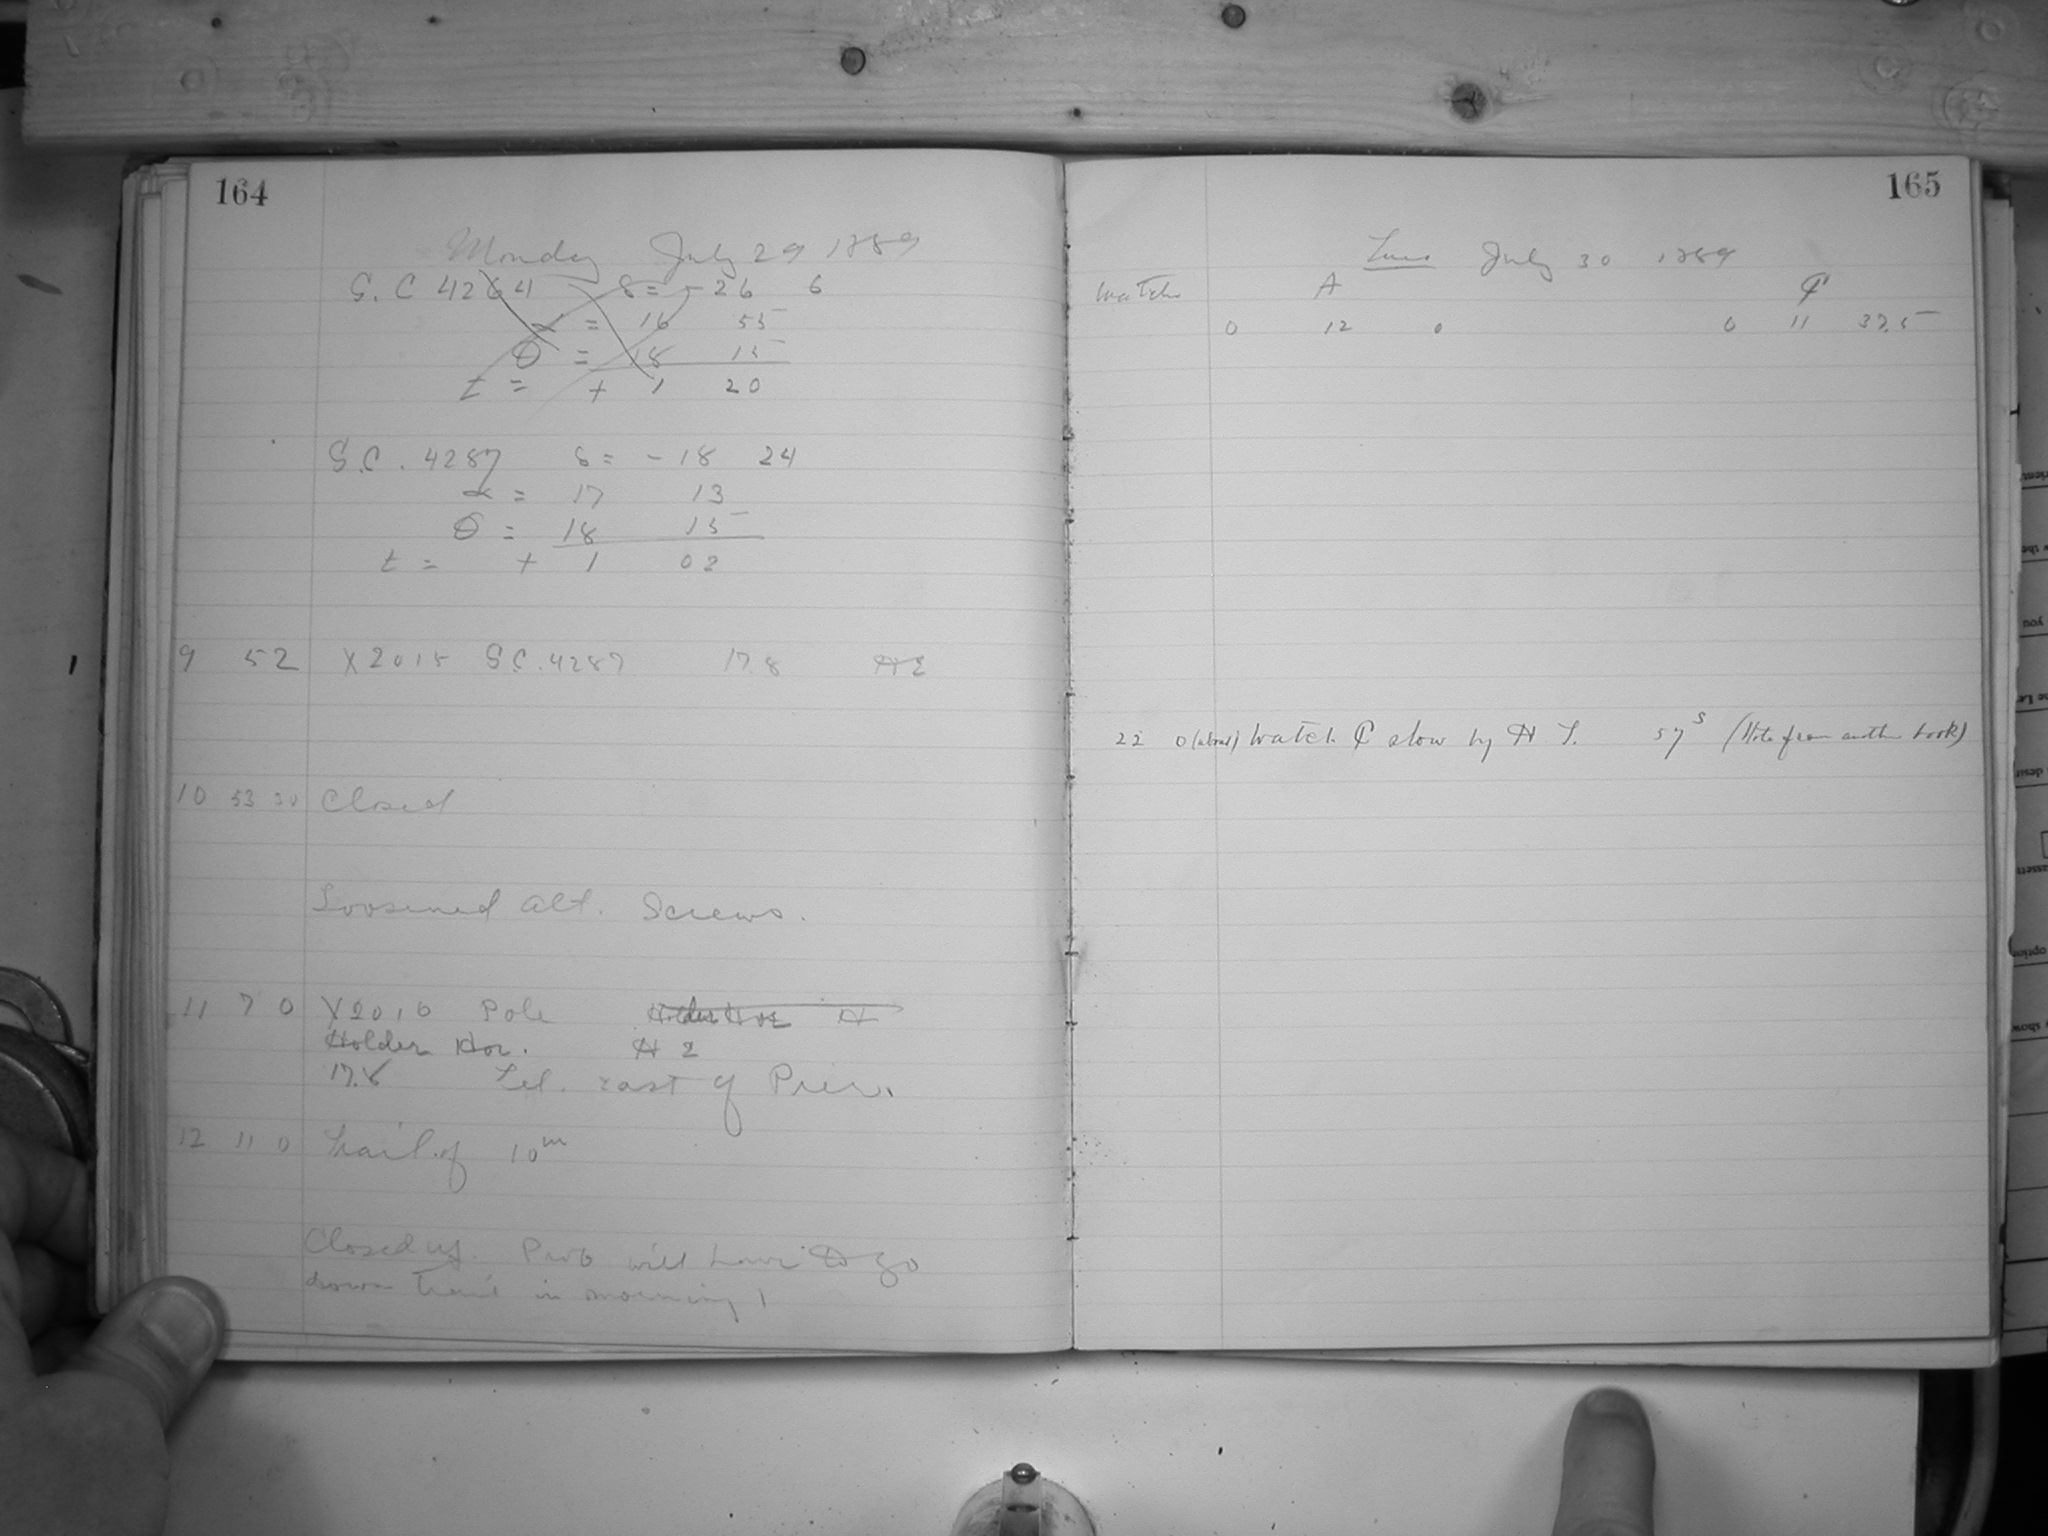 164
Monday July 29 1889
S.C 4264 δ = - 26 6
α = 16 55
θ = 18 15
t = + 1 20
S.C. 4287 δ = - 18 24
α = 17 13
θ = 18 15
t = + 1 02
9 52 X2015 S.C. 4287 17.8 H2
10 53 30 Closed
Loosened alt. Screws.
11 7 0 X2016 Pole Holder Hor H
Holder Hor. H 2
17.8 Tel. east of Pier.
12 11 0 Trail of 10m
Closed up. Prob will have to go
down trail in morning!
165
Tues July 30 1889
Watch A ₵
0 12 0 0 11 37.5
22 0 (about) Watch ₵ slow by H T. 57s (Note from another book)